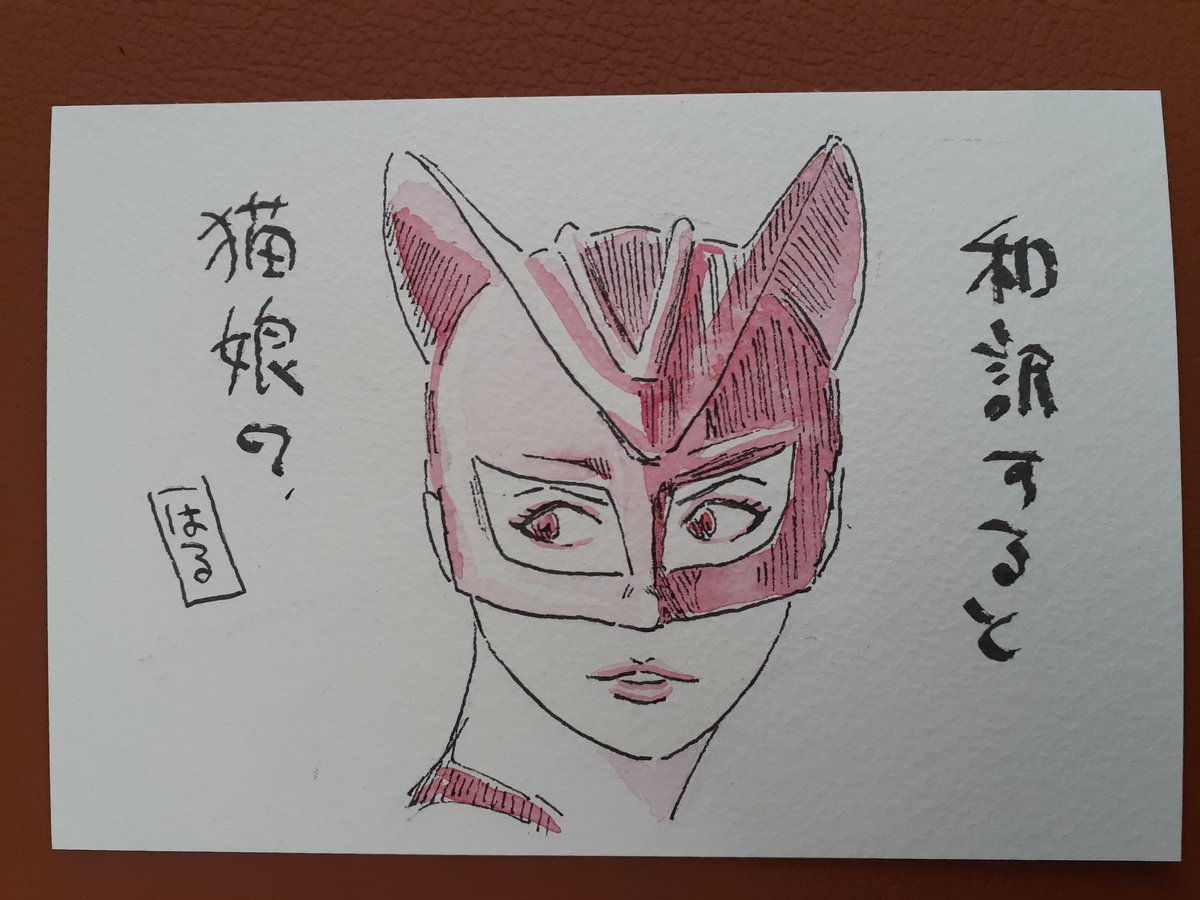 和訳すると
猫娘の、
はる